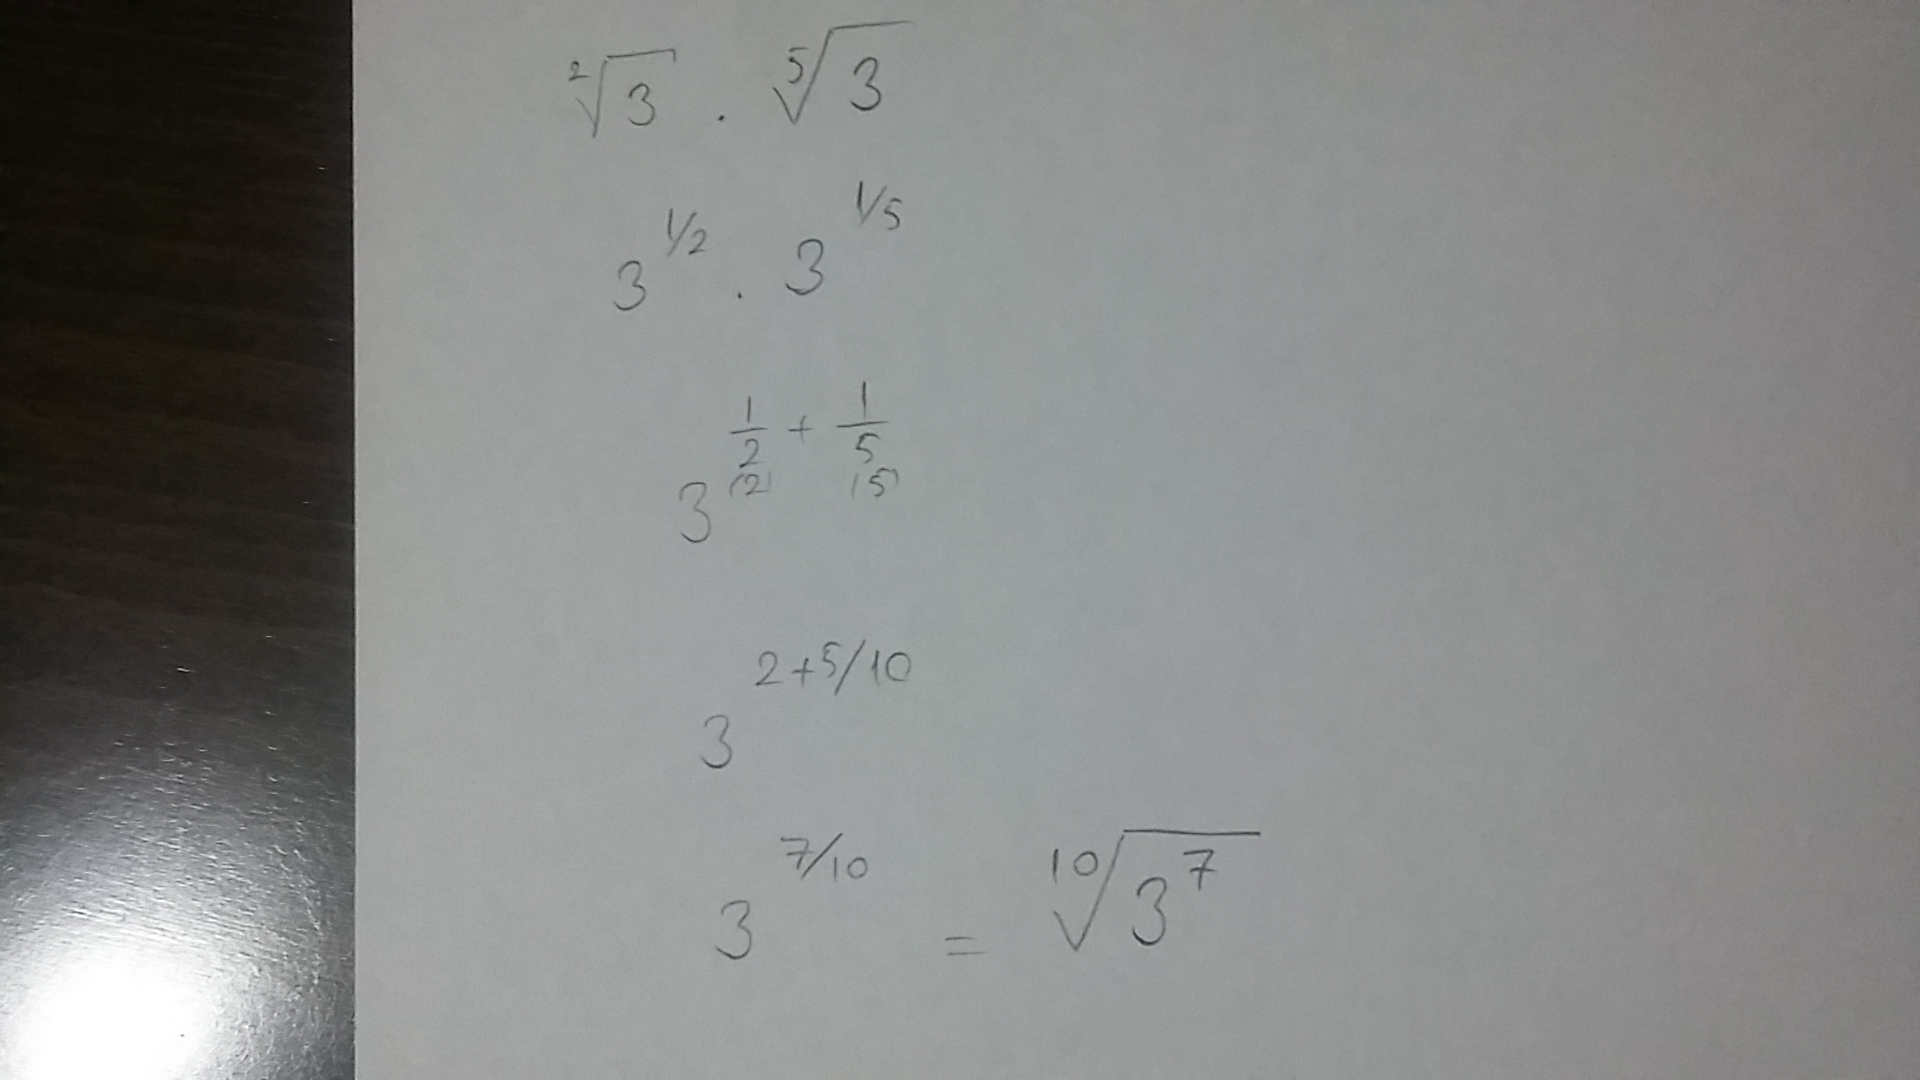 ²√3 . ⁵√3
3^1/2 . 3^1/5
3^(1/2 + 1/5)
(2) (5)
3^2+5/10
3^7/10 = ¹⁰√3^7